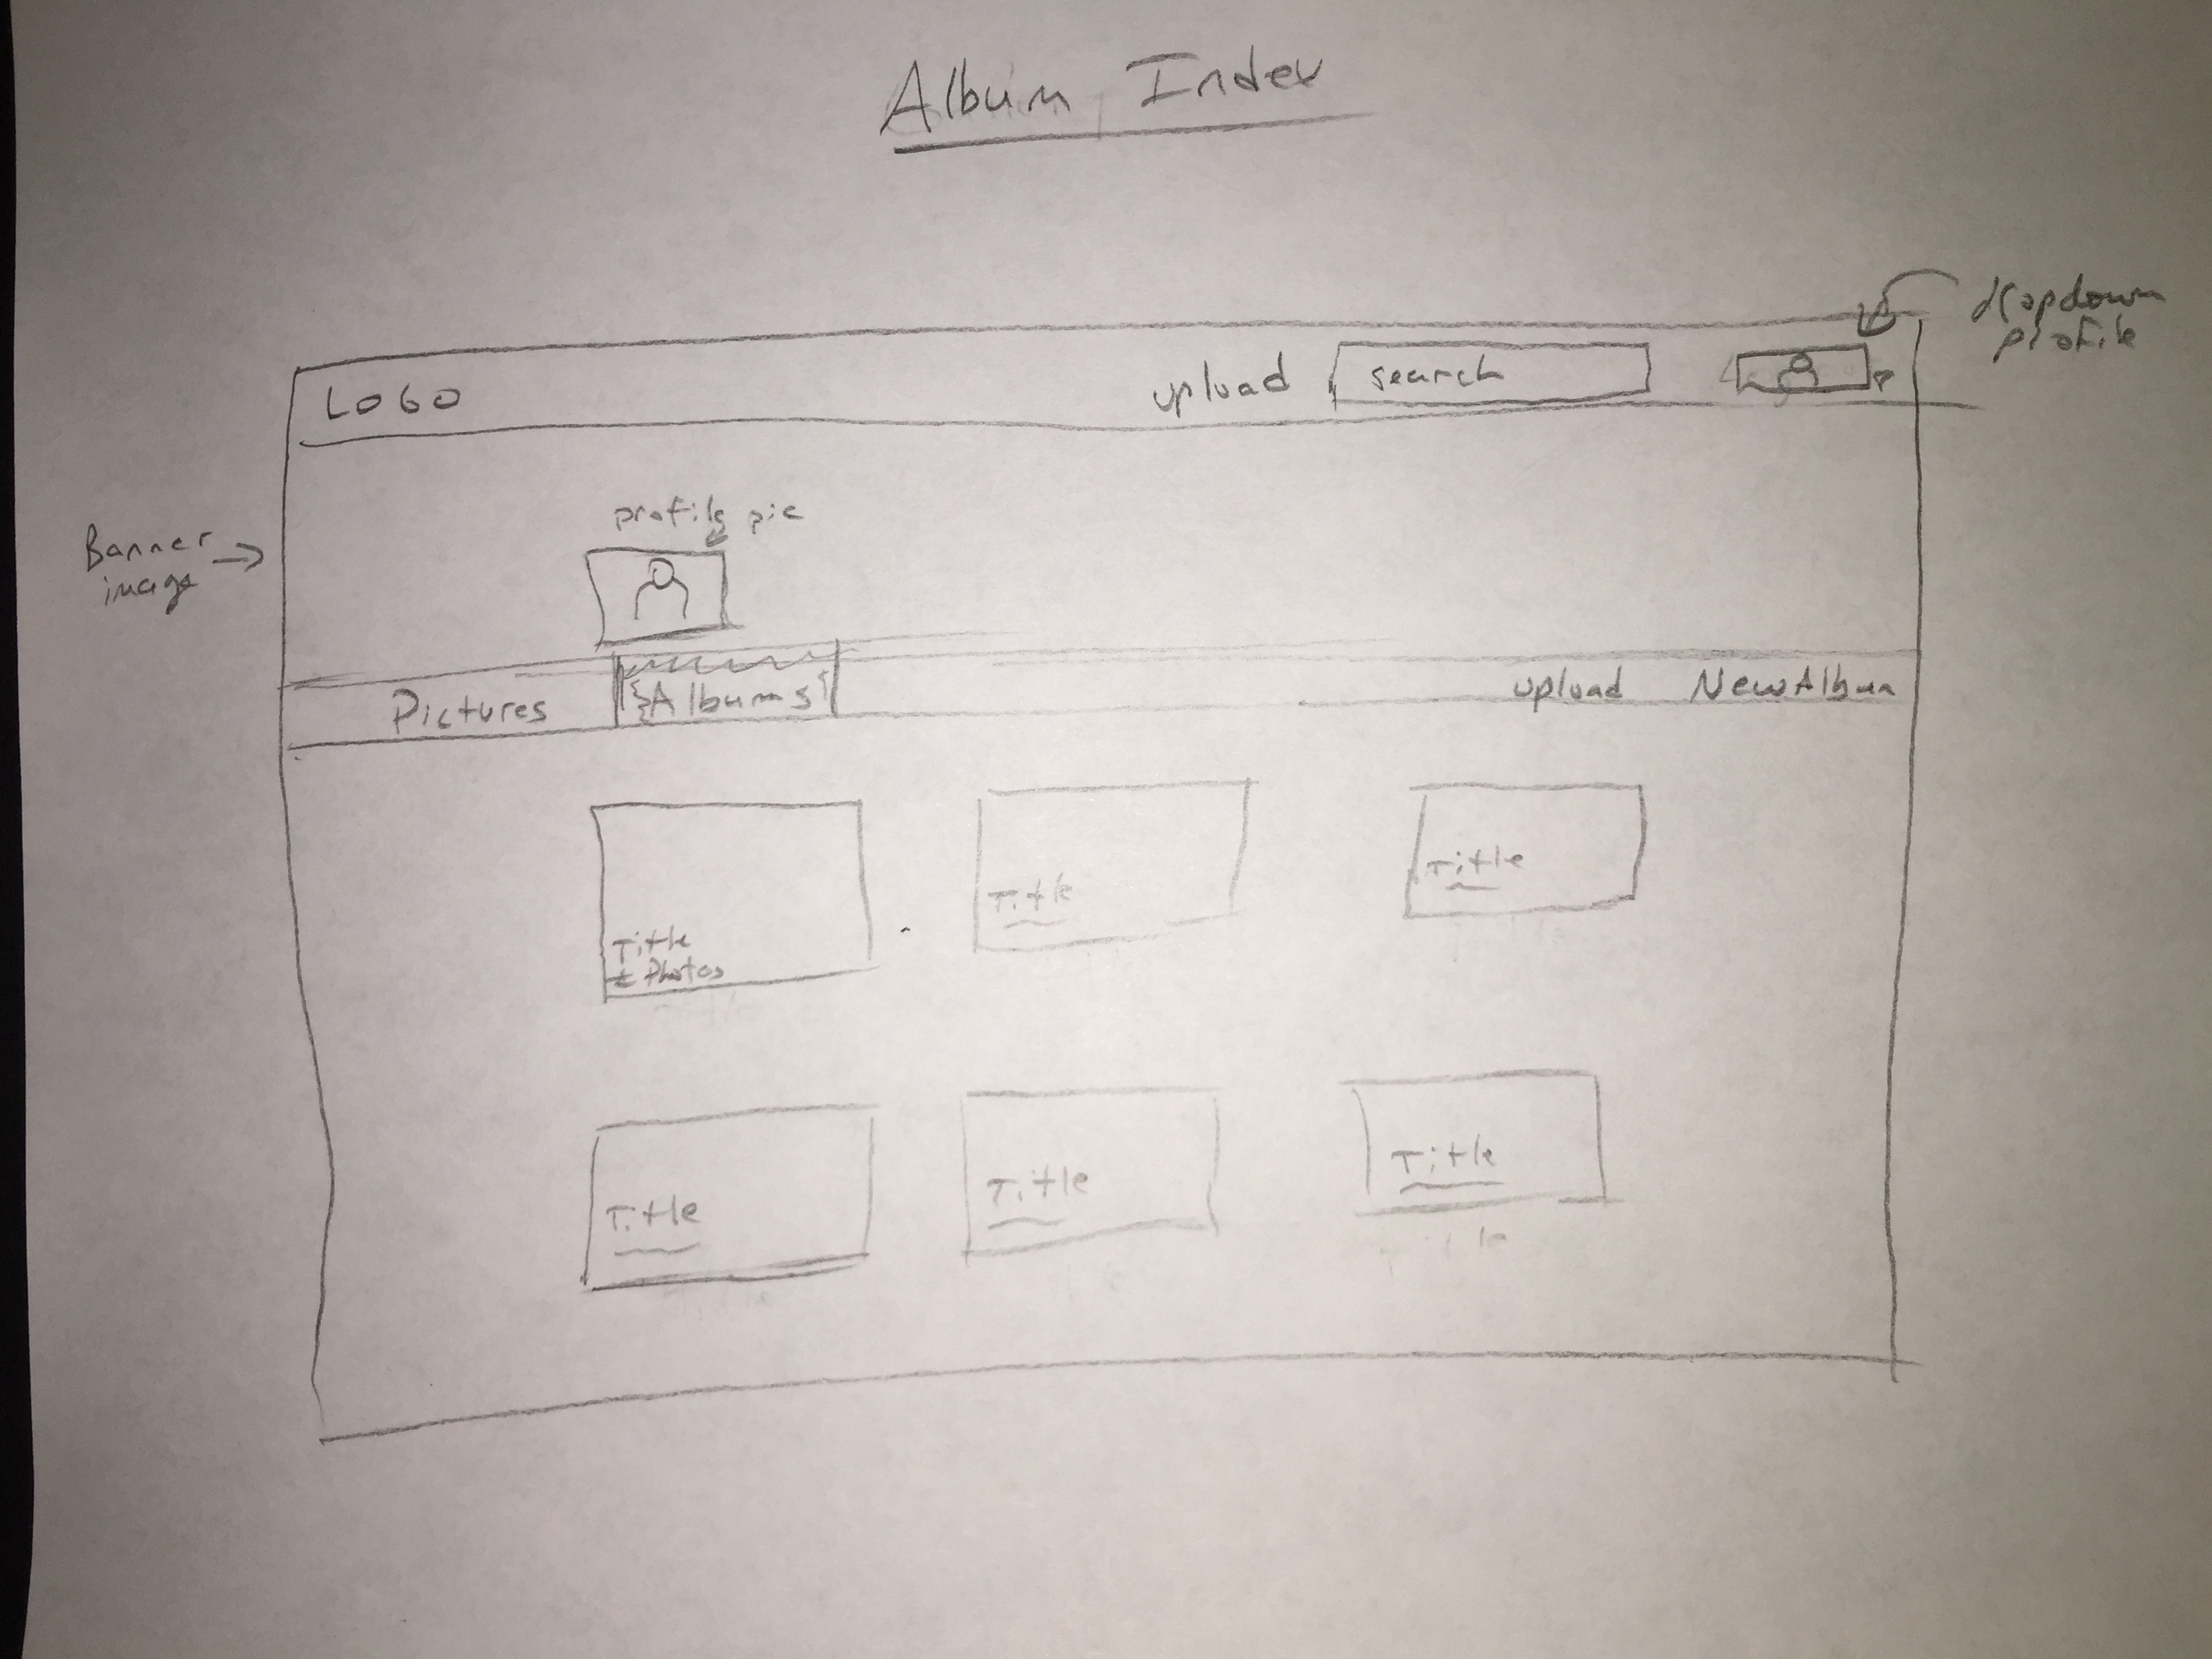 Album Index
dropdown
profile
LOGO
upload
search
profile pic
Banner
image
Pictures
Albums
upload
New Album
Title
# Photos
Title
Title
Title
Title
Title